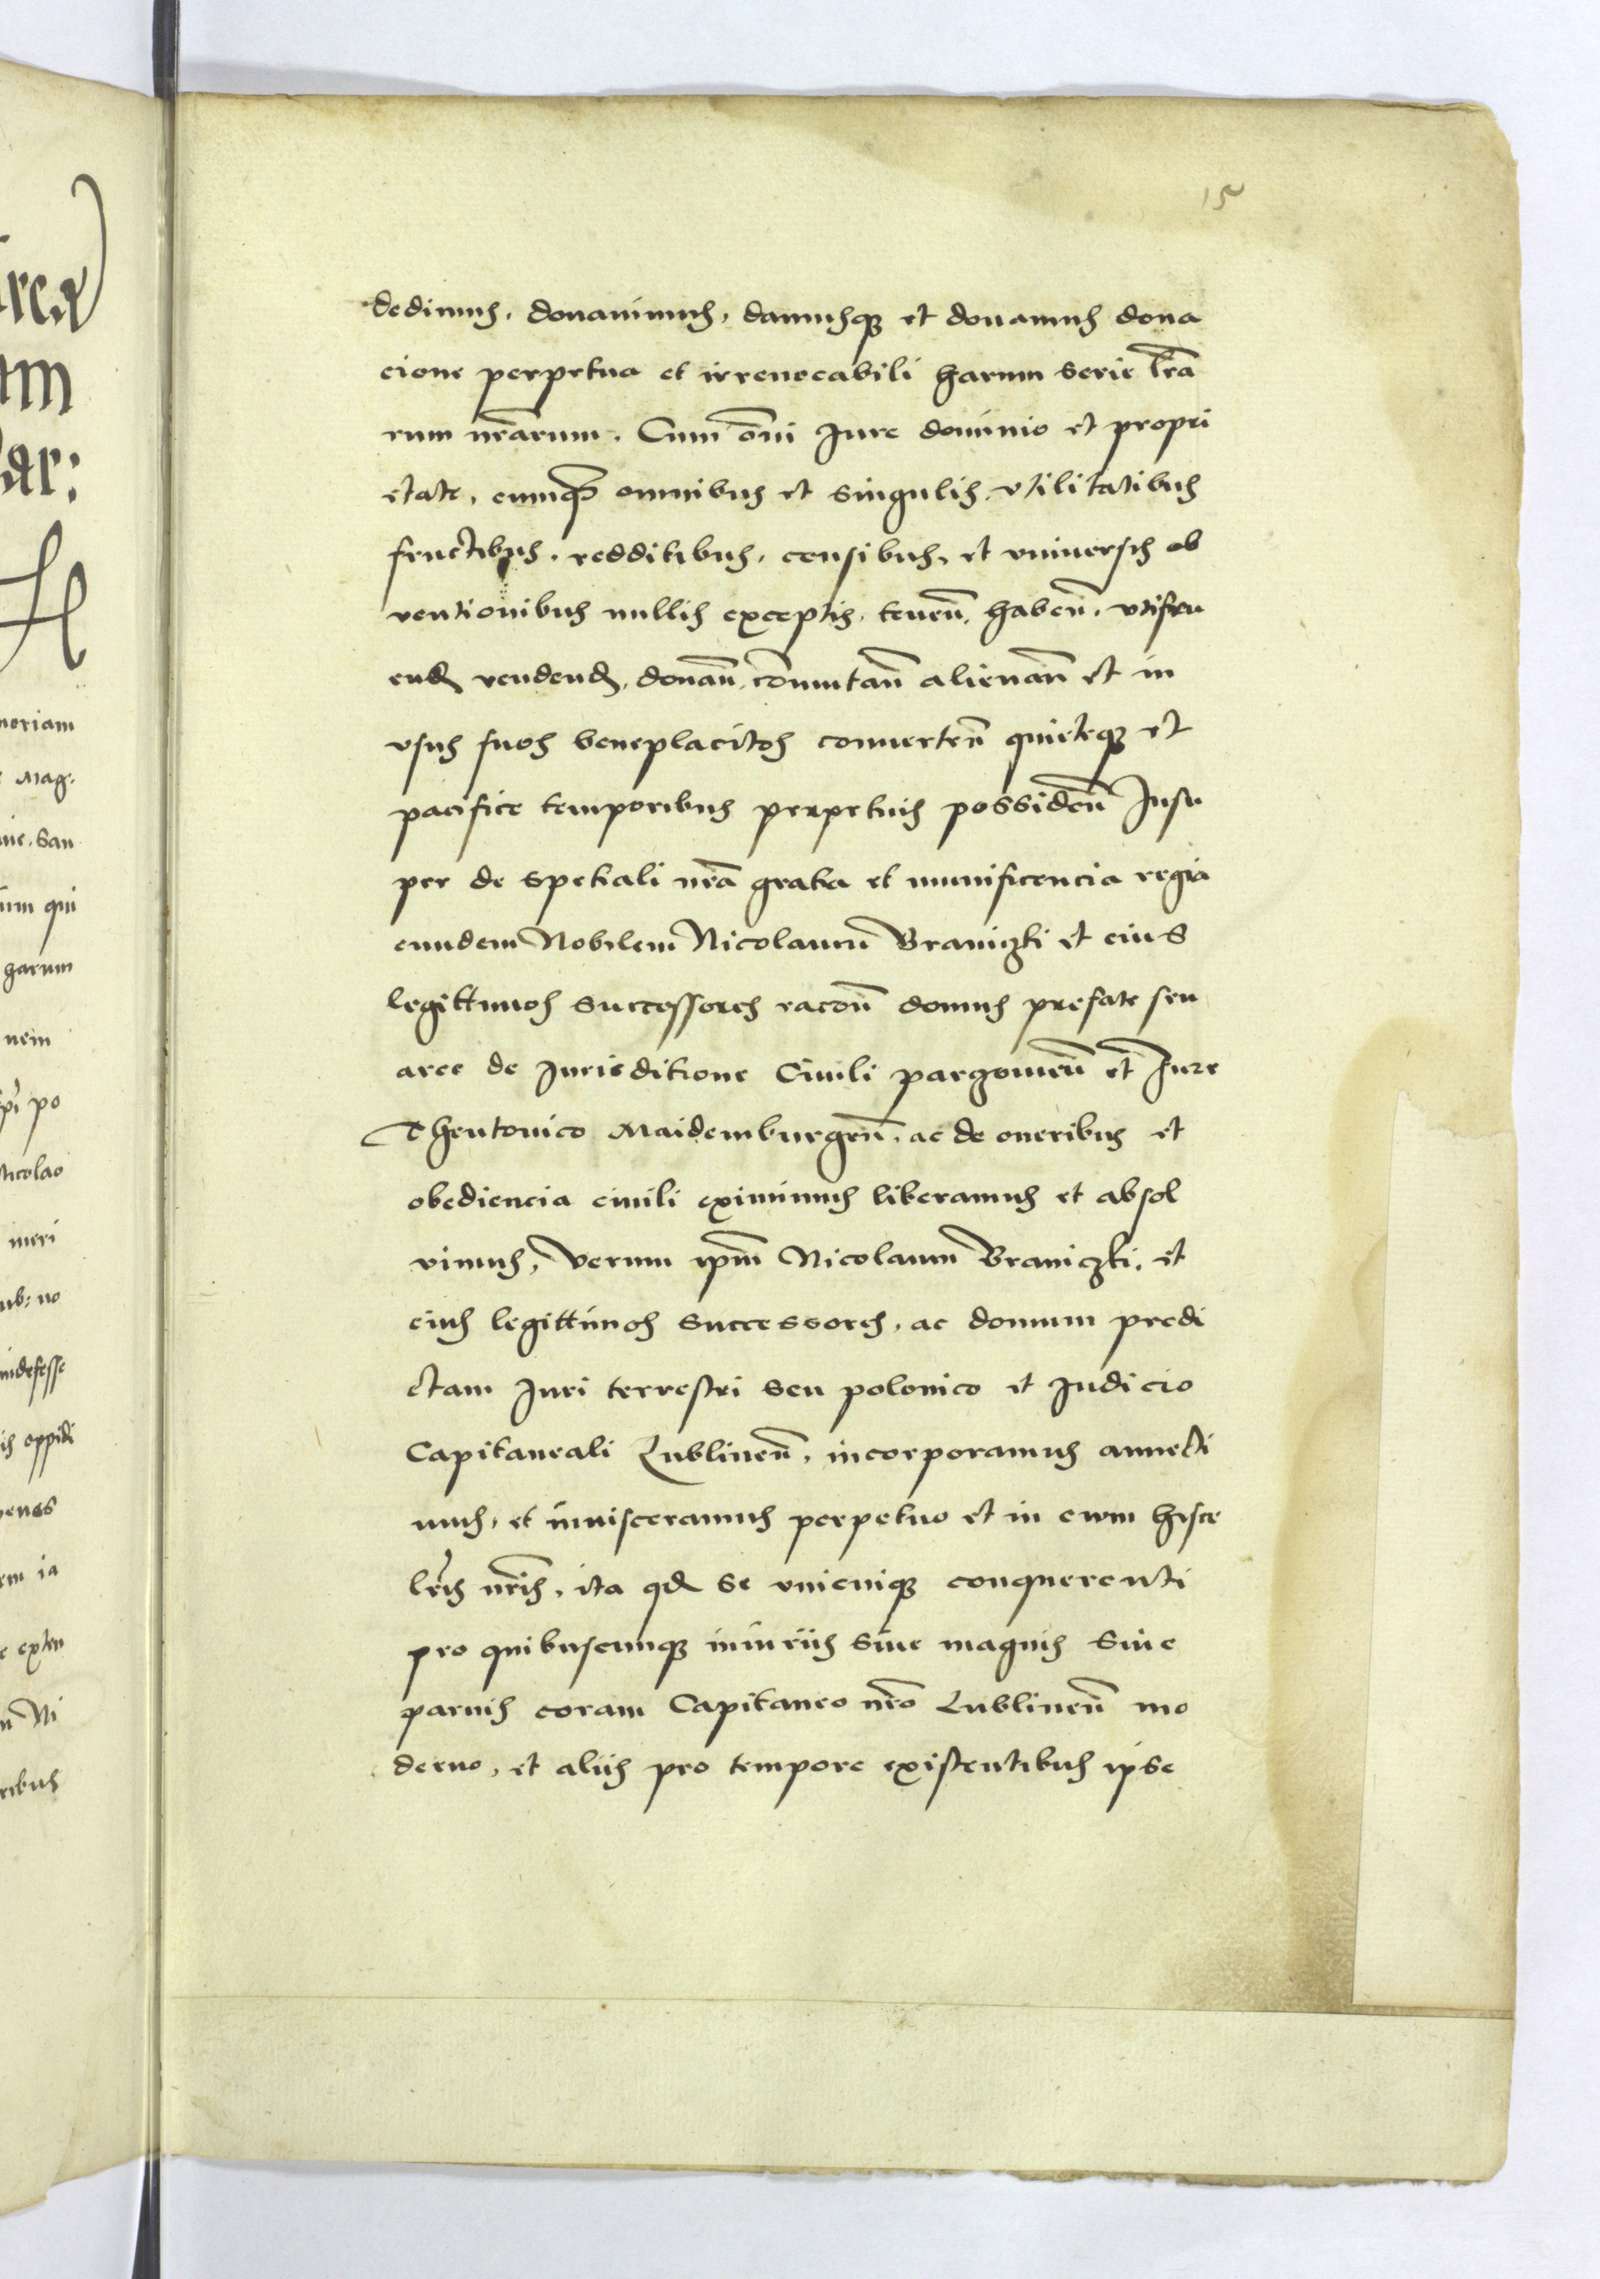 15
dedimus, donauimus, damusq3 et donamus dona
cione perpetua et irreuocabili harum serie lr̃a
rum nr̃arum. Cum om̃i Iure dominio et propri
etate, cumq3 omnibus et singulis vtilitatibus
fructibus, redditibus, censibus, et vniuersis ob
ventionibus nullis exceptis, tenen̄, haben̄, vtifru
end̄ vendend̄, donan̄, com̄utan̄ alienan̄ et in
vsus suos beneplacitos conuerten̄ quieteq3 et
pacifice temporibus perpetuis possiden̄ Insu
per de spetiali nr̃a gratia et munificencia regia
eundem Nobilem Nicolaum Braniczki et eius
legittimos successores racōn̄ domus prefate seu
aree de Iurisditione Ciuili pargomen̄ et Iure
Theutonico Maidemburgen̄, ac de oneribus et
obediencia ciuili eximimus liberamus et absol
vimus, Verum ip̄m Nicolaum Braniczki, et
eius legittimos successores, ac domum predi
ctam Iuri terrestri seu polonico et Iudicio
Capitaneali Lublinen̄, incorporamus annecti
mus, et inuisceramus perpetuo et in ewm hisce
lr̃is nr̃is, ita qd̄ se vnicuiq3 conquerenti
pro quibuscunq3 iniuriis siue magnis siue
paruis coram Capitaneo nr̃o Lublinen̄ mo
derno, et aliis pro tempore existentibus ipse
noriam
Mag.
San
qui
harum
nem
po
Nicolao
meri
no
indefesse
oppidi
ia
exten
Ni
ribus